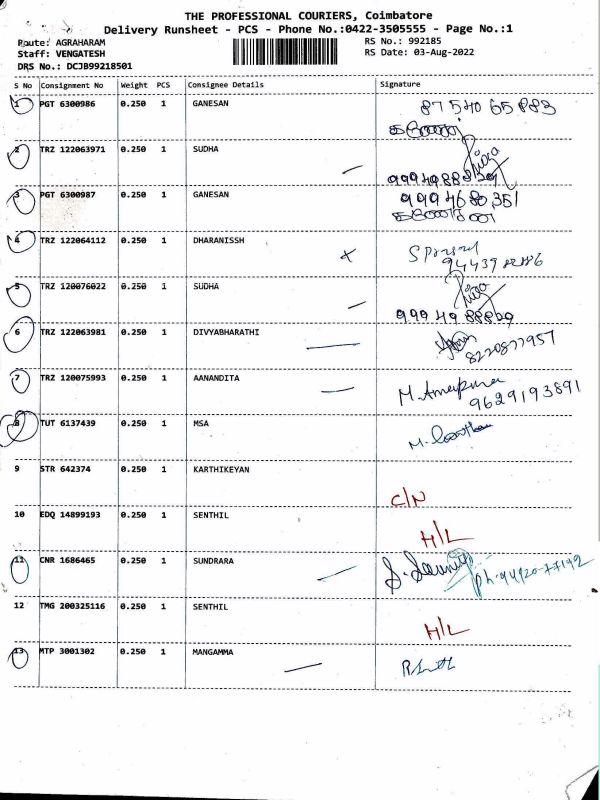 THE PROFESSIONAL COURIERS, Coimbatore
Delivery Runsheet - PCS - Phone No.:0422-3505555 - Page No.:1
Route: AGRAHARAM RS No.: 992185
Staff: VENGATESH RS Date: 03-Aug-2022
DRS No.: DCJB99218501
S No Consignment No Weight PCS Consignee Details Signature
1 PGT 6300986 0.250 1 GANESAN 87540 65883
2 TRZ 122063971 0.250 1 SUDHA
3 PGT 6300987 0.250 1 GANESAN 9994680351
4 TRZ 122064112 0.250 1 DHARANISSH
5 TRZ 120076022 0.250 1 SUDHA
6 TRZ 122063981 0.250 1 DIVYABHARATHI
8220877957
7 TRZ 120075993 0.250 1 AANANDITA
9629193891
8 TUT 6137439 0.250 1 MSA
9 STR 642374 0.250 1 KARTHIKEYAN
C/N
10 EDQ 14899193 0.250 1 SENTHIL
H/L
11 CNR 1686465 0.250 1 SUNDRARA Ph-94420-77192
12 TMG 200325116 0.250 1 SENTHIL
H/L
13 MTP 3001302 0.250 1 MANGAMMA